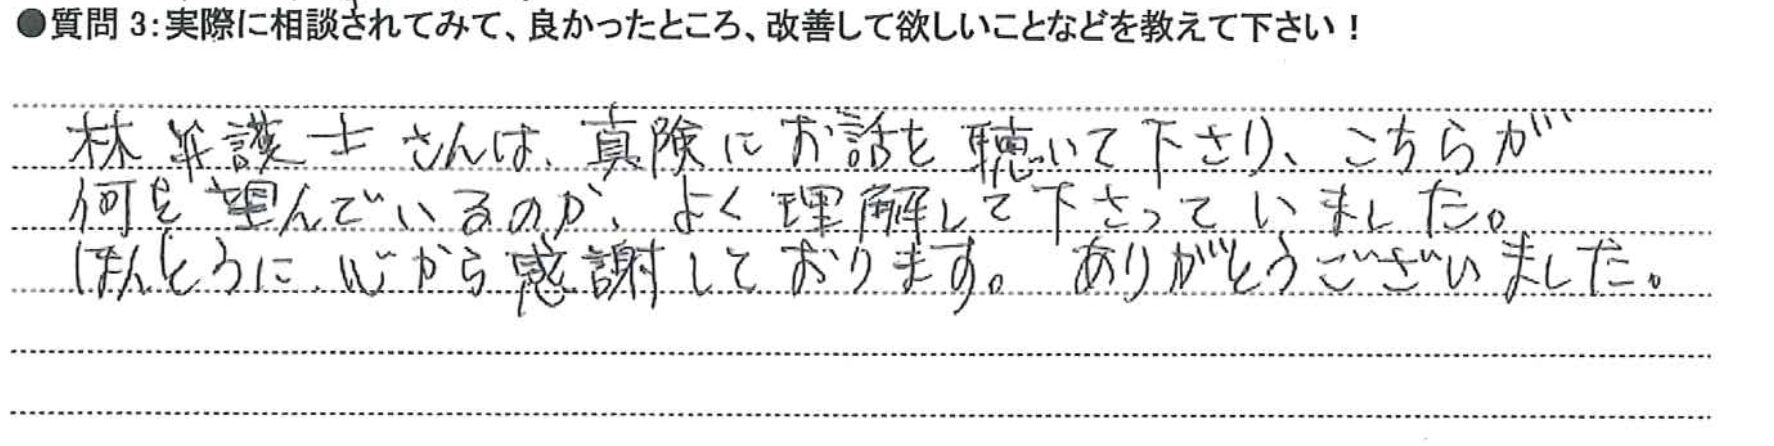 ●質問 3:実際に相談されてみて、良かったところ、改善して欲しいことなどを教えて下さい！
林弁護士さんは、真険にお話を聴いて下さり、こちらが
何を望んでいるのか、よく理解して下さっていました。
ほんとうに、心から感謝しております。ありがとうございました。